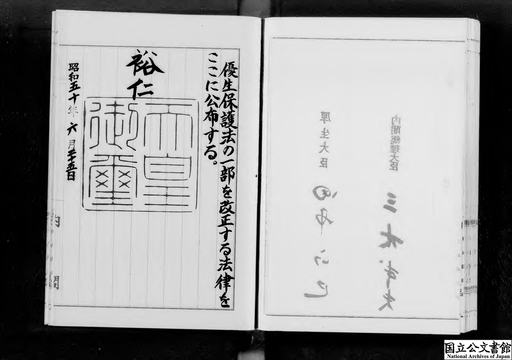 優生保護法の一部を改正する法律を
ここに公布する。
裕仁
天皇
御璽
昭和五十年六月二十五日
内閣
内閣総理大臣
三木武夫
厚生大臣
田中正巳
国立公文書館
National Archives of Japan